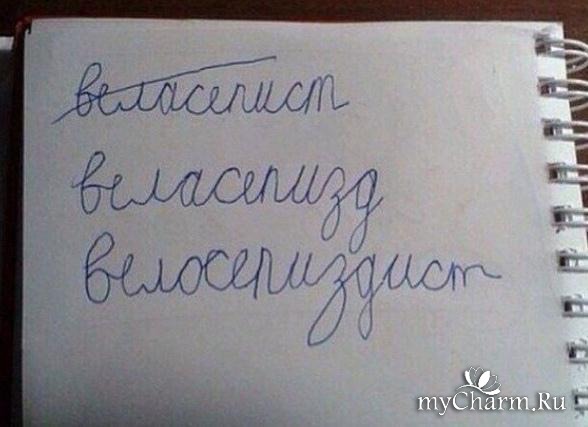 веласепист
веласепизд
велосепиздист
myCharm.Ru